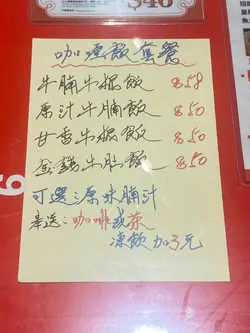 $46
咖喱飯套餐
牛腩牛根飯 $58
原汁牛腩飯 $50
甘香牛根飯 $50
牛肚飯 $50
可選:原味腩汁
奉送:咖啡或茶
凍飲加3元